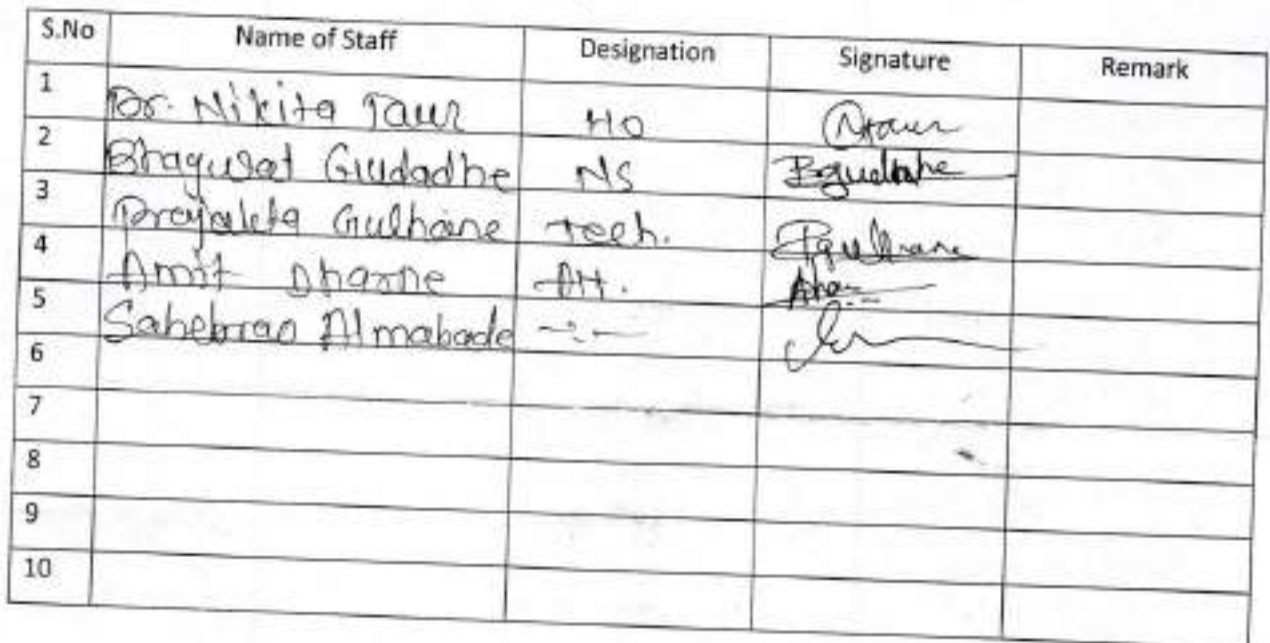 S.No Name of Staff Designation Signature Remark
1 Dr. Nikita Taur MO Ntaur
2 Bhagwat Gudadhe NS Bgudadhe
3 Prajakta Gulhane Tech. Pgulhane
4 Amit Dharne AH.
5 Sahebrao Almabade -:-
6
7
8
9
10